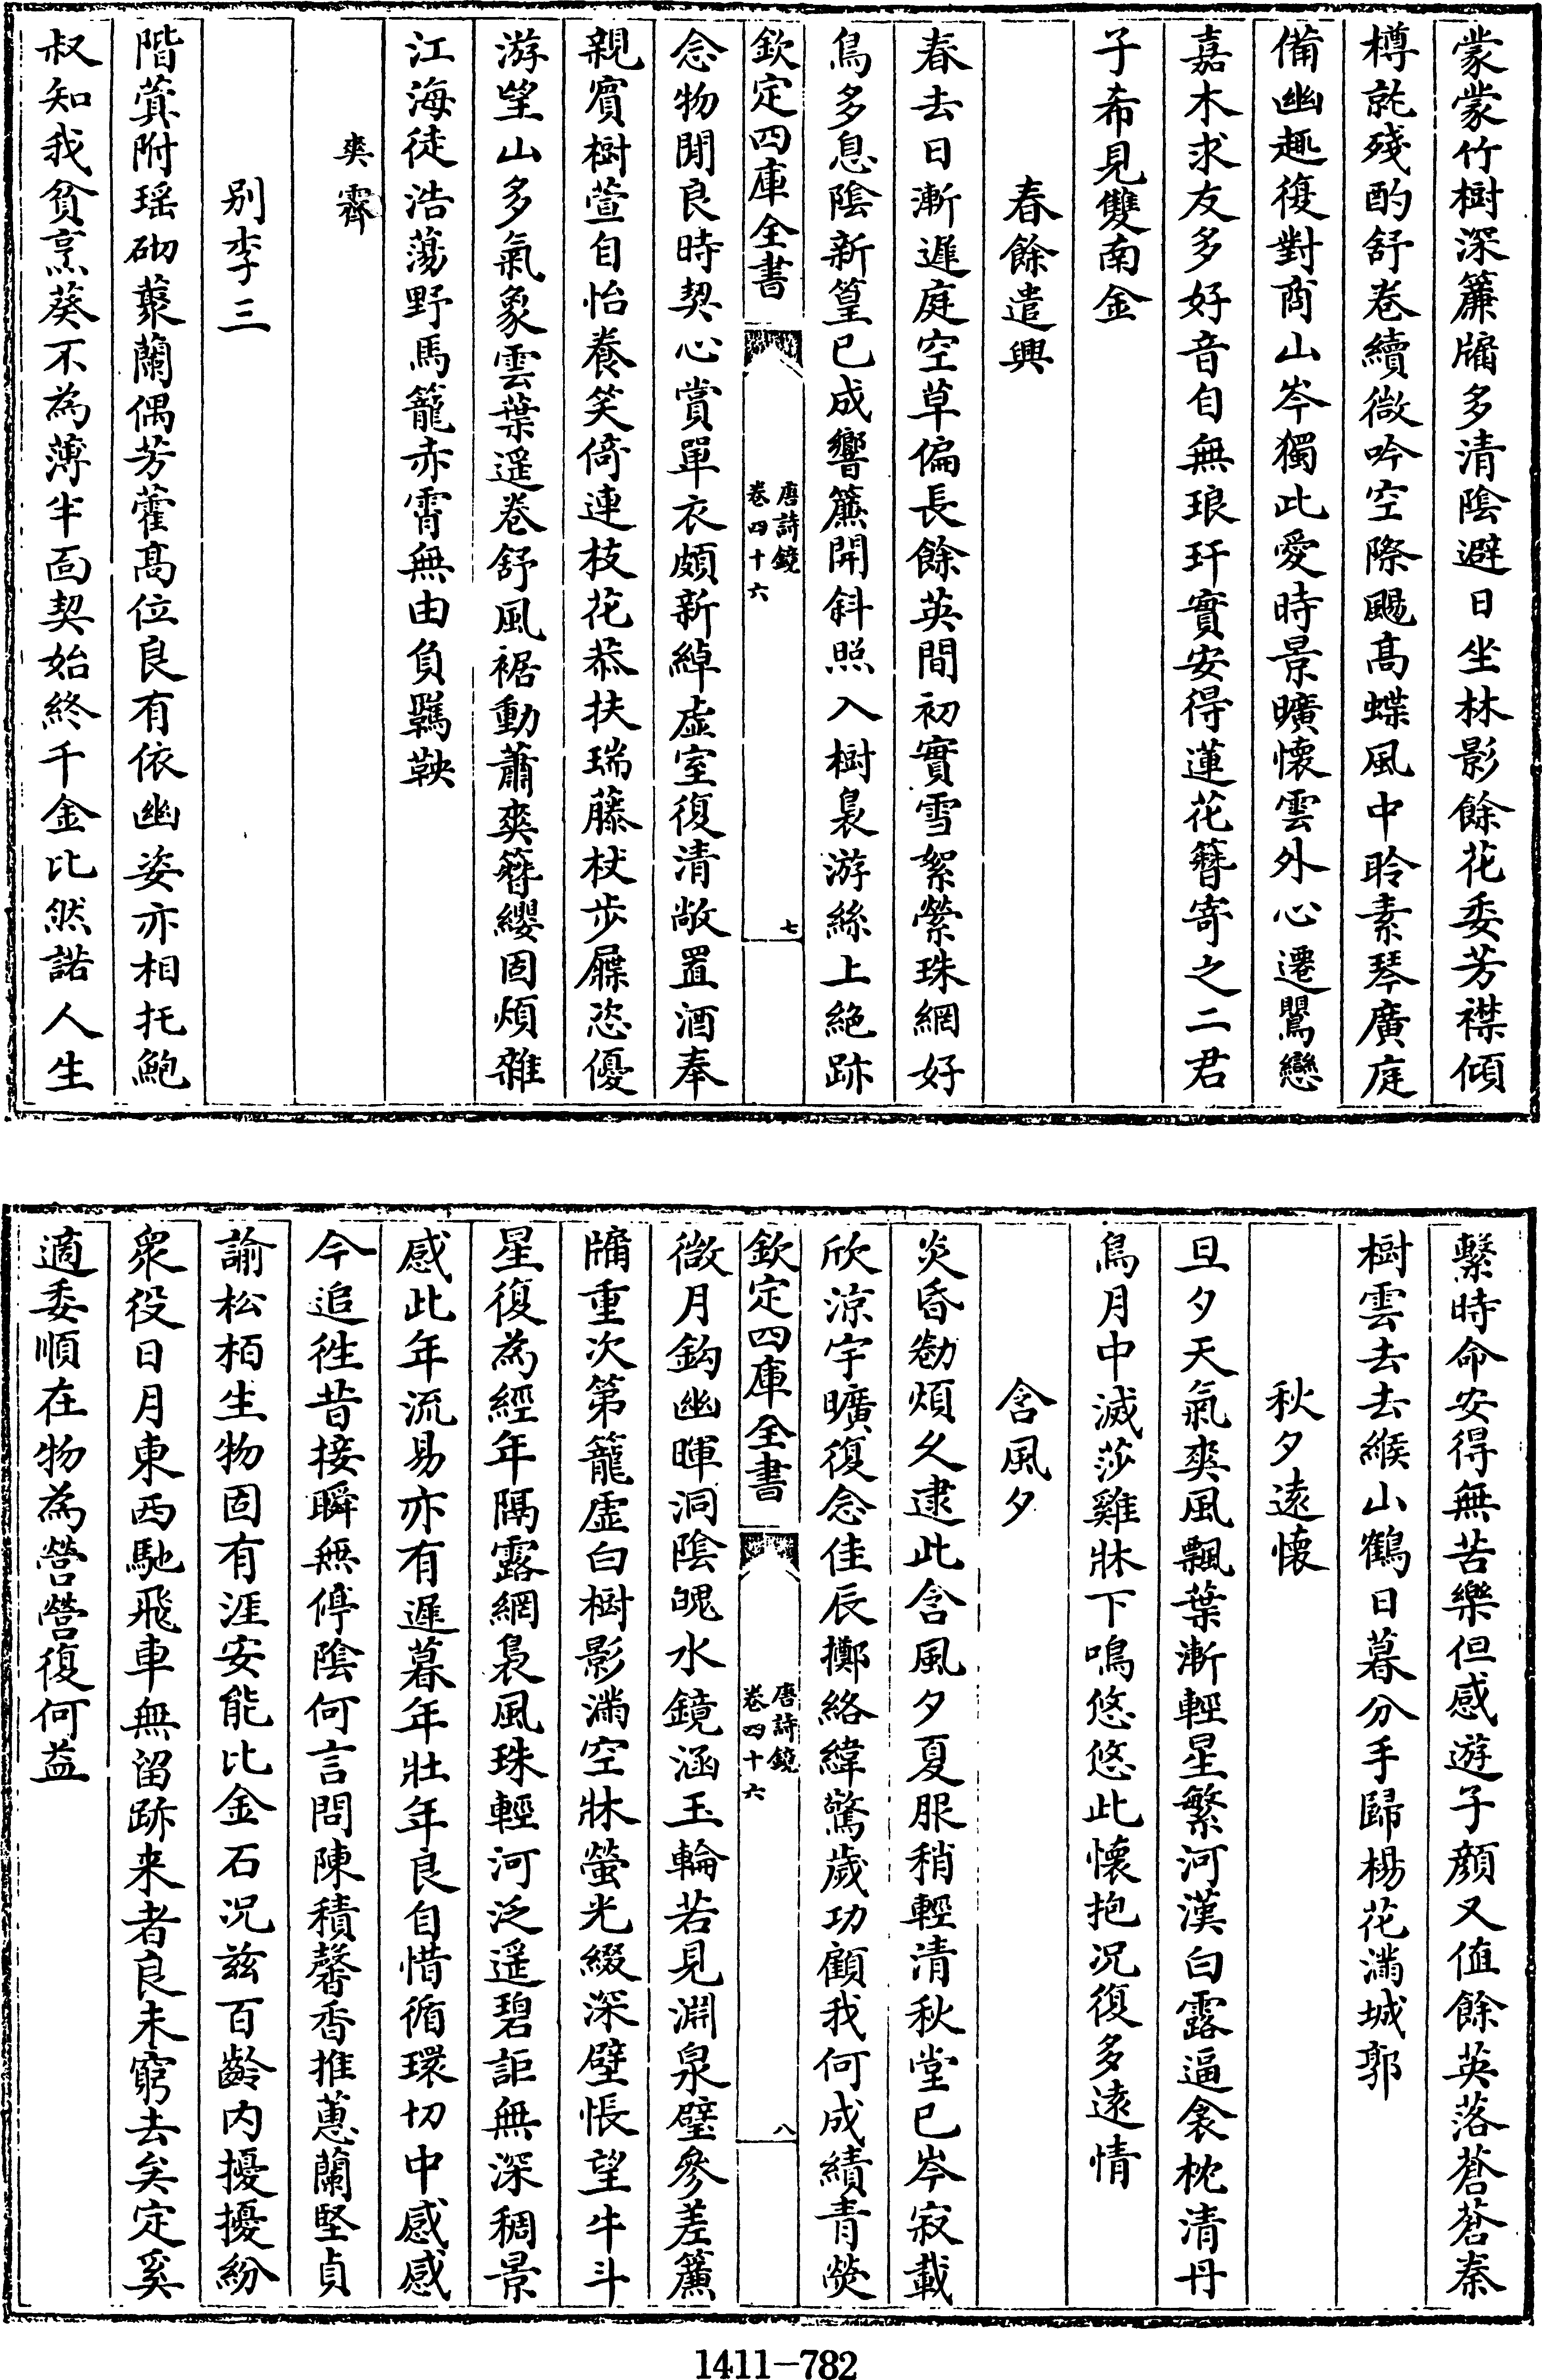 蒙蒙竹樹深簾牖多清陰避日坐林影餘花委芳襟傾
樽就殘酌舒卷續微吟空際颺高蝶風中聆素琴廣庭
備幽趣復對商山岑獨此愛時景曠懷雲外心遷鶯戀
嘉木求友多好音自無琅玕實安得蓮花簪寄之二君
子希見雙南金
春餘遣興
春去日漸遲庭空草偏長餘英間初實雪絮縈珠網好
鳥多息陰新篁已成響簾開斜照入樹裊游絲上絶跡
欽定四庫全書
唐詩鏡
卷四十六
七
念物閒良時契心賞單衣頗新綽虛室復清敞置酒奉
親賓樹萱自怡養笑倚連枝花恭扶瑞藤杖步屧恣優
游望山多氣象雲葉遥卷舒風裾動蕭爽簪纓固煩雜
江海徒浩蕩野馬籠赤霄無由負羈鞅
爽霽
别李三
階蓂附瑶砌叢蘭偶芳藿高位良有依幽姿亦相托鮑
叔知我貧烹葵不為薄半面契始終千金比然諾人生
繫時命安得無苦樂但感遊子顏又值餘英落蒼蒼秦
樹雲去去緱山鶴日暮分手歸楊花滿城郭
秋夕遠懷
旦夕天氣爽風飄葉漸輕星繁河漢白露逼衾枕清丹
鳥月中滅莎雞牀下鳴悠悠此懷抱况復多遠情
含風夕
炎昏勌煩久逮此含風夕夏服稍輕清秋堂已岑寂載
欣涼宇曠復念佳辰擲絡緯驚歲功顧我何成績青熒
欽定四庫全書
唐詩鏡
卷四十六
八
微月鈎幽暉洞陰魄水鏡涵玉輪若見淵泉璧參差簾
牖重次第籠虛白樹影滿空牀螢光綴深壁悵望牛斗
星復為經年隔露網裊風珠輕河泛遥碧詎無深稠景
感此年流易亦有遲暮年壯年良自惜循環切中感感
今追徃昔接瞬無停陰何言問陳積馨香推蕙蘭堅貞
諭松栢生物固有涯安能比金石况兹百齡内擾擾紛
衆役日月東西馳飛車無留跡来者良未窮去矣定奚
適委順在物為營營復何益
1411-782